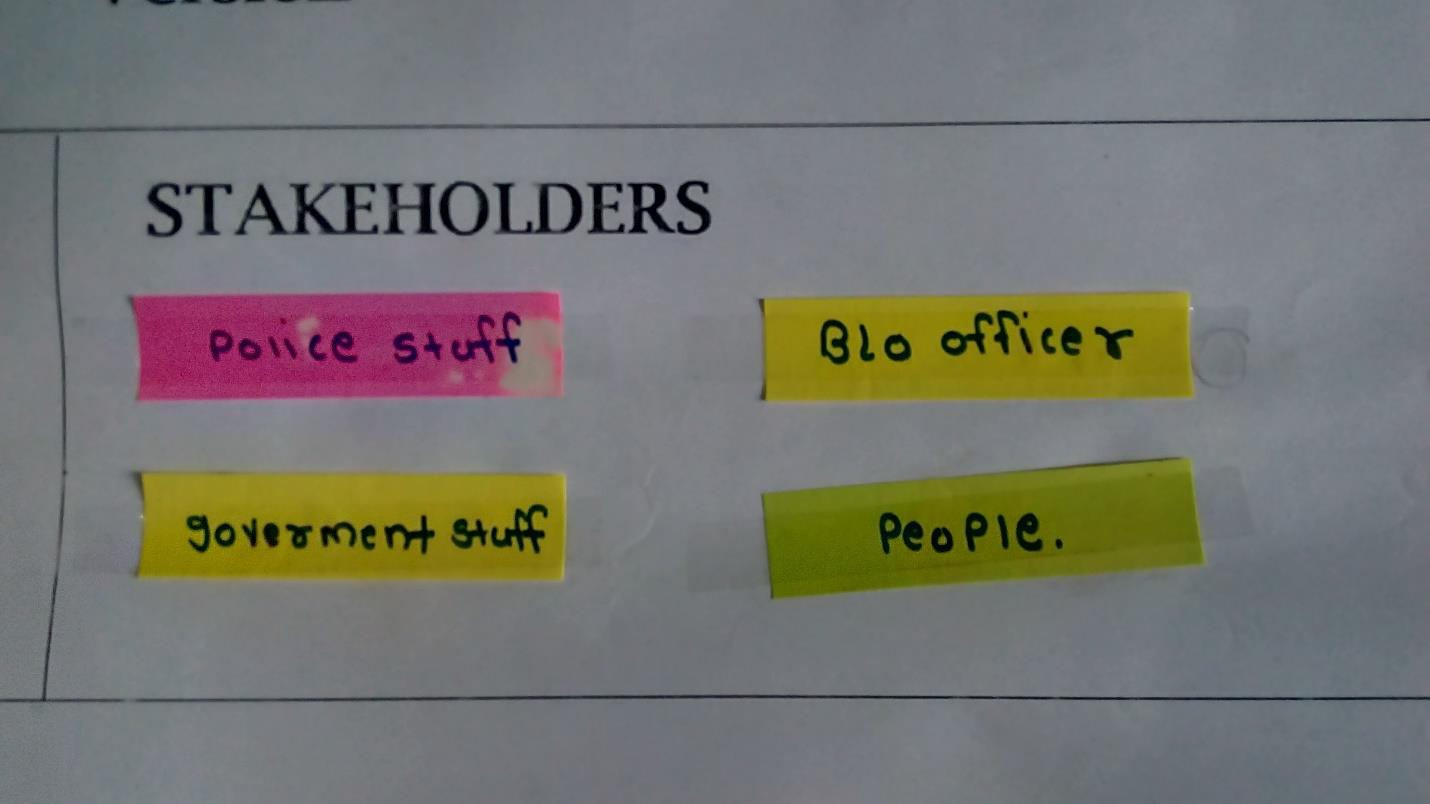 STAKEHOLDERS
Police stuff
Blo officer
goverment stuff
People.